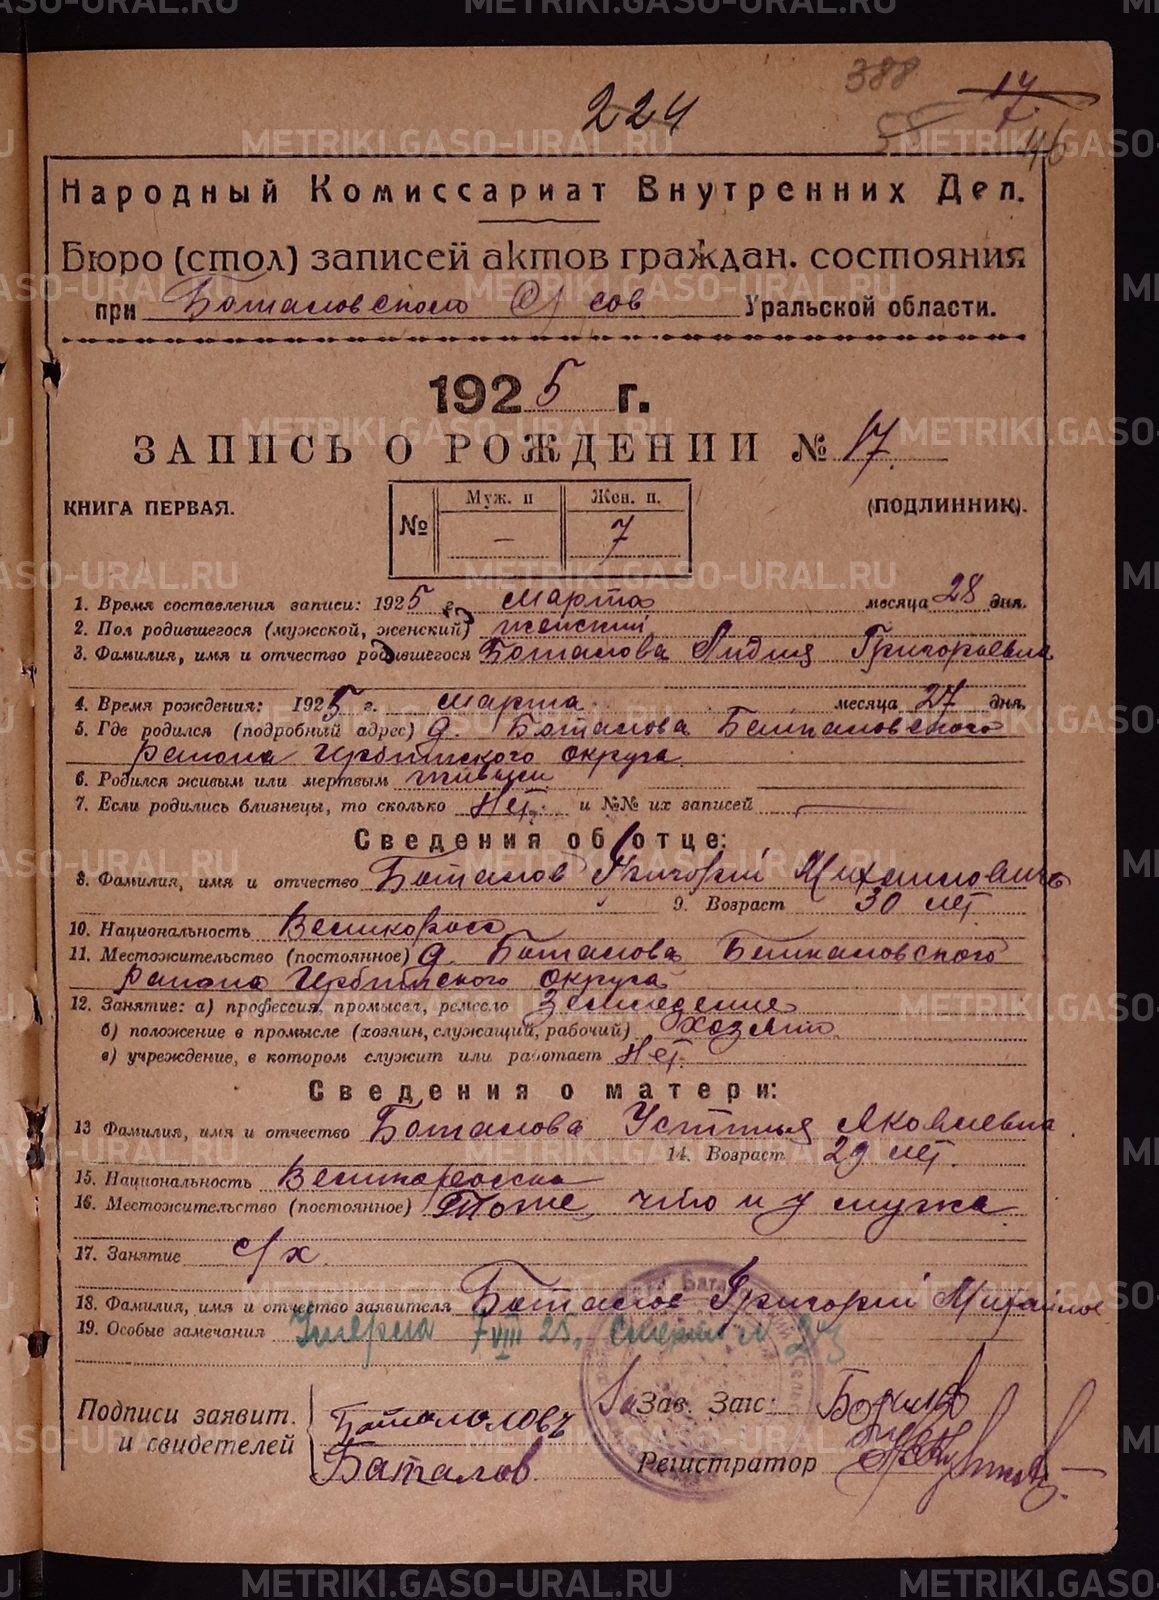 388
224
17
55
46
Народный Комиссариат Внутренних Дел.
Бюро (стол) записей актов граждан. состояния
при Боталовского С/сов Уральской области.
1925 г.
ЗАПИСЬ О РОЖДЕНИИ № 17.
КНИГА ПЕРВАЯ.
(подлинник).
Муж. п Жен. п.
№ — 7
1. Время составления записи: 1925 г. марта месяца 28 дня.
2. Пол родившегося (мужской, женский) женский
3. Фамилия, имя и отчество родившегося Боталова Лидия Григорьевна
4. Время рождения: 1925 г. марта месяца 27 дня.
5. Где родился (подробный адрес) д. Боталова
района Ирбитского округа.
6. Родился живым или мертвым живым
7. Если родились близнецы, то сколько Нет. и №№ их записей —
Сведения об отце:
8. Фамилия, имя и отчество Боталов Григорий Михайлович
9. Возраст 30 лет
10. Национальность Великоросс
11. Местожительство (постоянное) д. Боталова
района Ирбитского округа
12. Занятие: а) профессия, промысел, ремесло Земледелие
б) положение в промысле (хозяин, служащий, рабочий) хозяин
в) учреждение, в котором служит или работает Нет.
Сведения о матери:
13 Фамилия, имя и отчество Боталова Устинья Яковлевна
14. Возраст 29 лет.
15. Национальность Великоросска
16. Местожительство (постоянное) Тоже, что и у мужа
17. Занятие с/х.
18. Фамилия, имя и отчество заявителя Боталов Григорий Михайлов
19. Особые замечания Умерла 7 VIII 25.
Подписи заявит.
и свидетелей
Баталов
За Зав. Загс:
Регистратор
METRIKI.GASO-URAL.RU